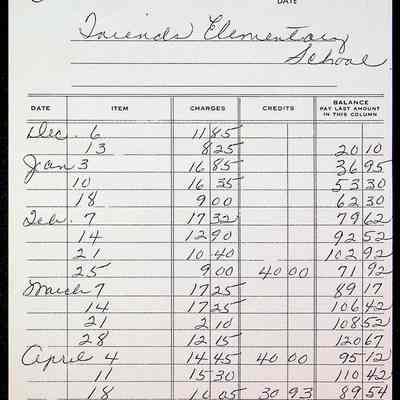 DATE
Friends Elementary
School
DATE ITEM CHARGES CREDITS BALANCE
PAY LAST AMOUNT
IN THIS COLUMN
Dec. 6 11 85
13 8 25 20 10
Jan 3 16 85 36 95
10 16 35 53 30
18 9 00 62 30
Feb. 7 17 32 79 62
14 12 90 92 52
21 10 40 102 92
25 9 00 40 00 71 92
March 7 17 25 89 17
14 17 25 106 42
21 2 10 108 52
28 12 15 120 67
April 4 14 45 40 00 95 12
11 15 30 110 42
18 10 05 30 93 89 54